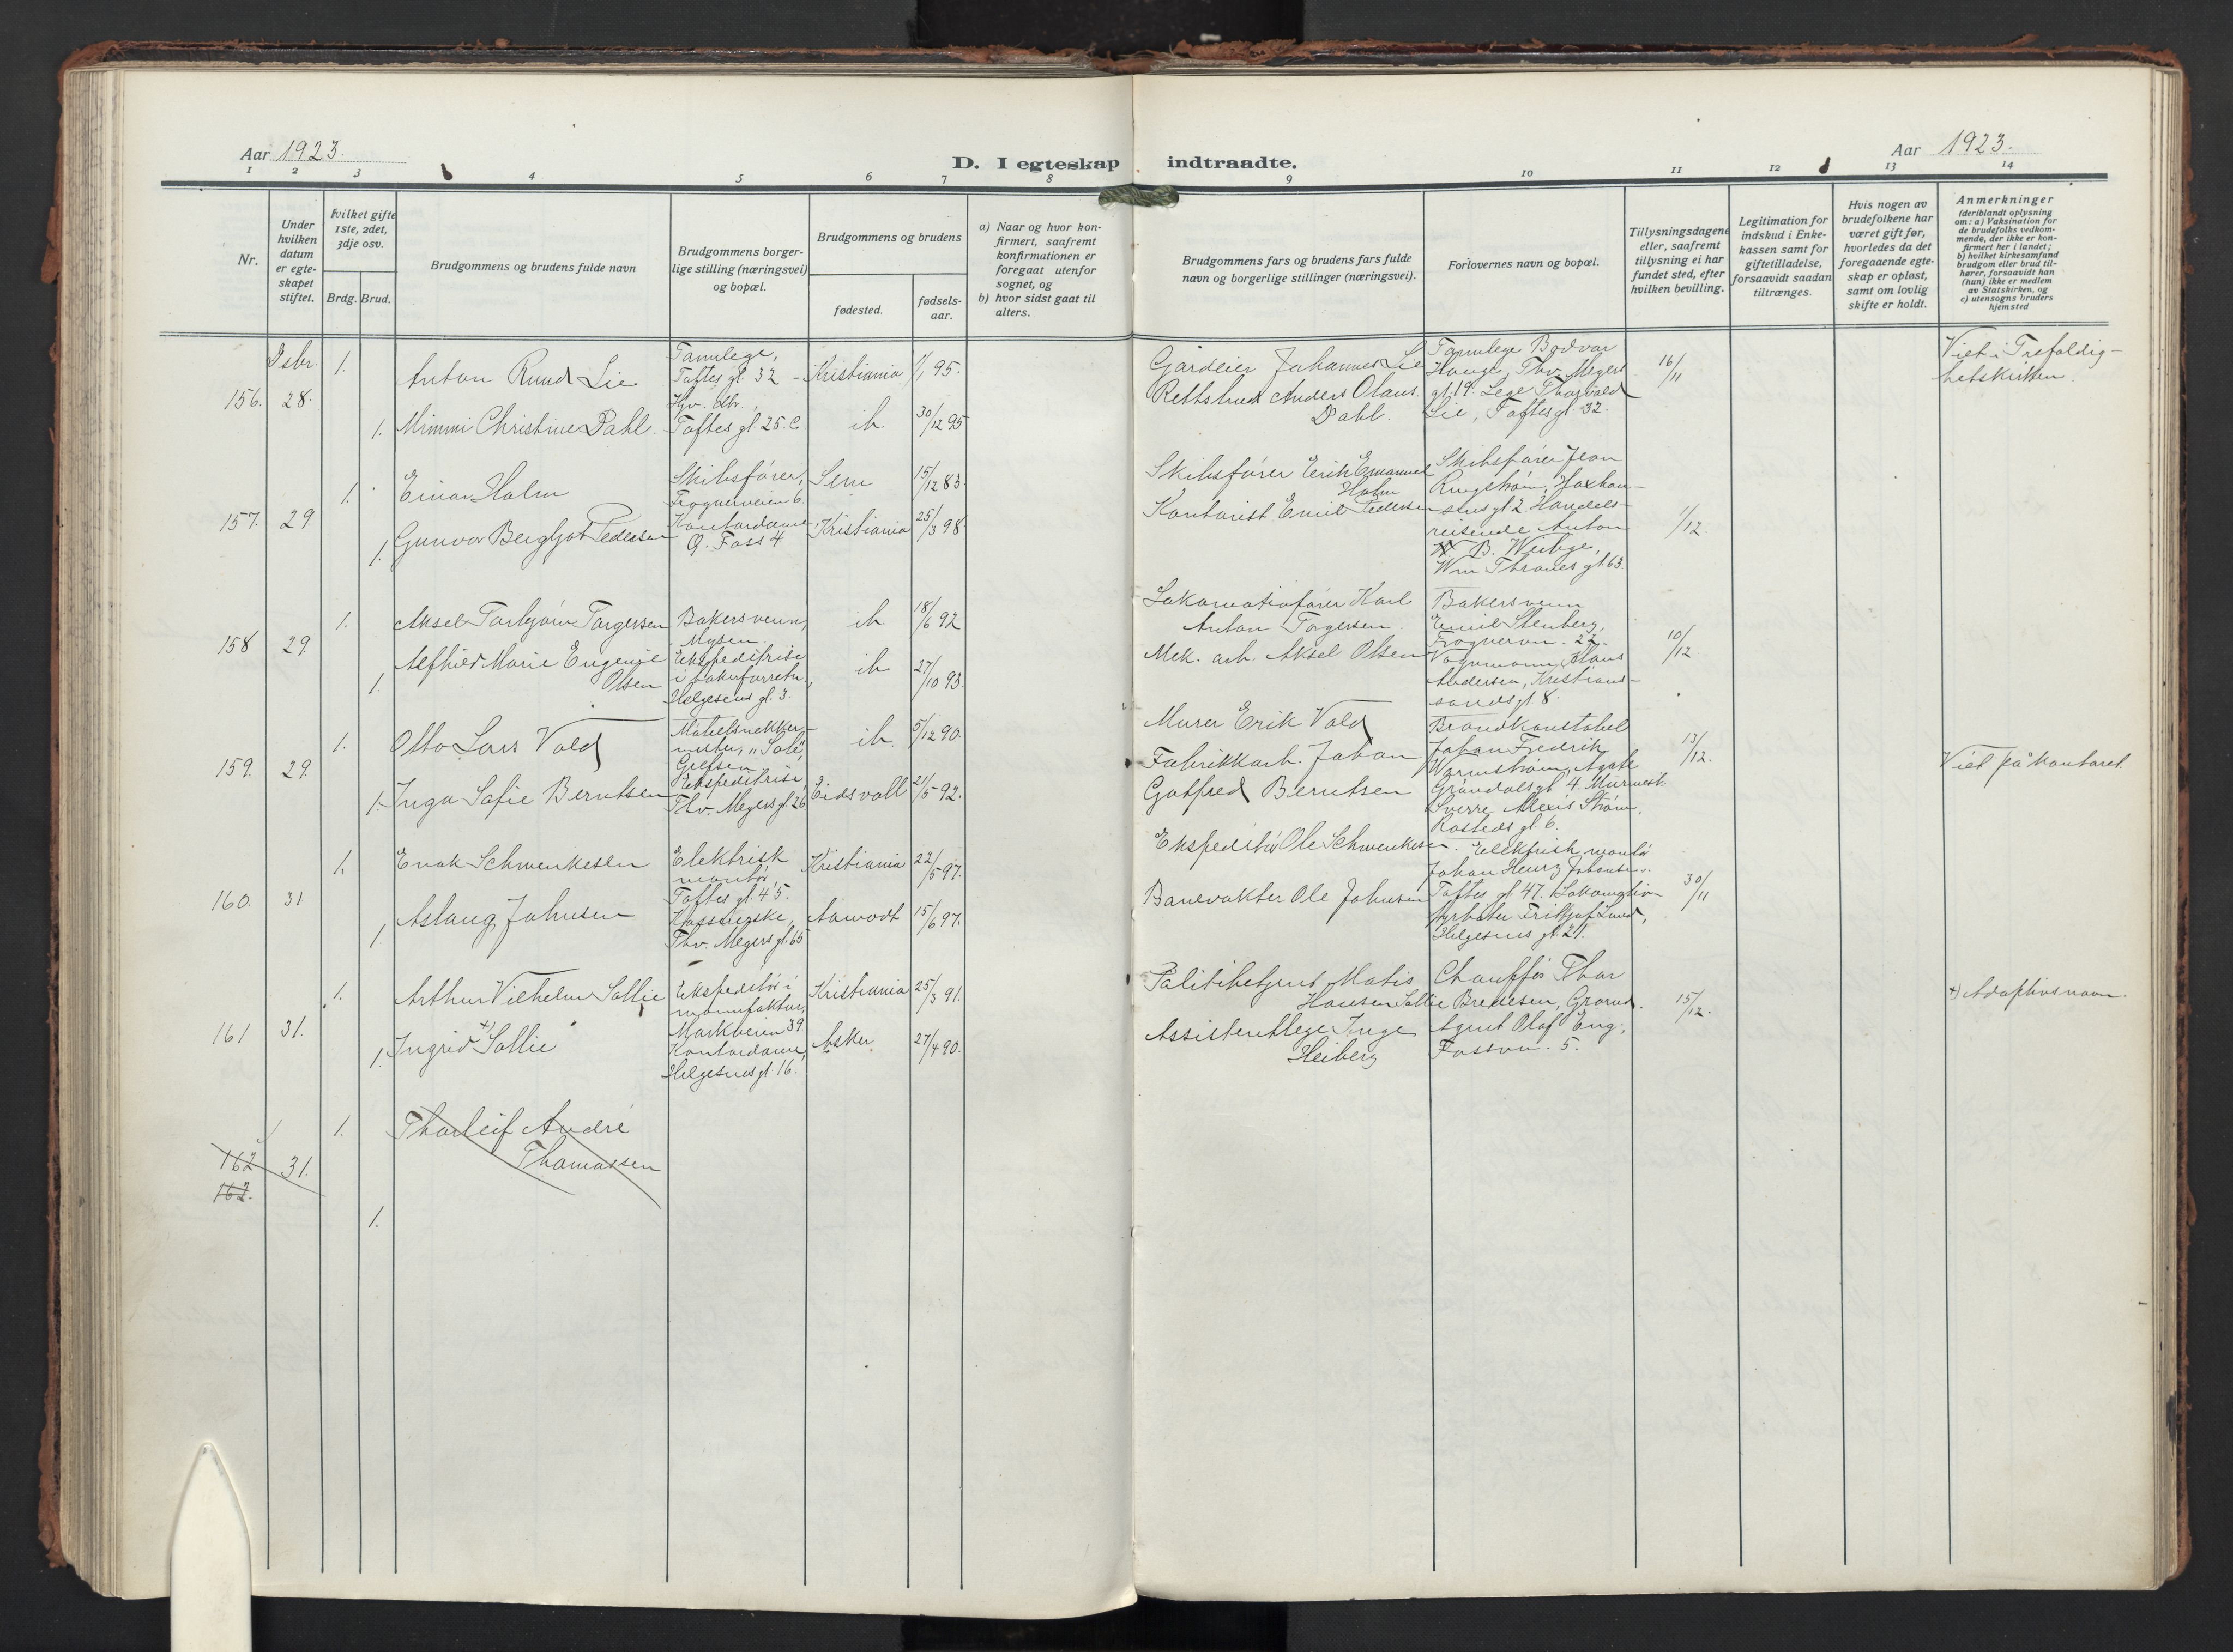 Aar 1923.
D. I egteskap indtraadte.
Aar 1923.
1 2 3 4 5 6 7 8 9 10 11 12 13 14
Nr.
Under hvilken datum er egteskapet stiftet.
Hvilket gifte 1ste, 2det, 3dje osv.
Brdg. Brud.
Brudgommens og brudens fulde navn
Brudgommens borgerlige stilling (næringsvei) og bopæl.
Brudgommens og brudens
fødested.
fødselsaar.
a) Naar og hvor konfirmert, saafremt konfirmationen er foregaat utenfor sognet, og
b) hvor sidst gaat til alters.
Brudgommens fars og brudens fars fulde navn og borgerlige stillinger (næringsvei).
Forlovernes navn og bopæl.
Tillysningsdagene eller, saafremt tillysning ei har fundet sted, efter hvilken bevilling.
Legitimation for indskud i Enkekassen samt for giftetilladelse, forsaavidt saadan tiltrænges.
Hvis nogen av brudefolkene har været gift før, hvorledes da det foregaaende egteskap er opløst, samt om lovlig skifte er holdt.
Anmerkninger
(deriblandt oplysning om: a) Vaksination for de brudefolks vedkommende, der ikke er konfirmert her i landet; b) hvilket kirkesamfund brudgom eller brud tilhører, forsaavidt han (hun) ikke er medlem av Statskirken, og c) utensogns bruders hjemsted
Dsbr.
156. 28.
1. Anton Ruud Lie
Tannlege,
Toftes gt. 32
Kristiania 1/1 95.
Gårdeier Johannes Lie
Tannlege Bodvar
Hauge, Thv. Meyers
gt. 19. Lege Thorvald
Lie, Toftes gt. 32.
16/11
Viet i Trefoldig-
hetskirken.
1. Mimmi Christine Dahl.
Hjv. dtr.,
Toftes gt. 25. C.
ib. 30/12 95
Rettsbud Anders Olaus
Dahl.
157. 29.
1. Einar Holm
Skibsfører,
Frognerveien 6.
Sem 15/12 83.
Skibsfører Erik Emanuel
Holm
Skibsfører Jean
Ringstrøm,
gt 2. Handels-
reisende Anton
B. Weihge,
Wm Thranes gt. 63.
1/12.
1. Gunvor Bergljot Pedersen
Kontordame
Ø. Foss 4
Kristiania 25/3 98.
Kontorist Emil Pedersen
158 29.
1. Aksel Torbjørn Torgersen
Bakersvenn,
Mysen.
ib. 18/6 92
Lokomotivfører Karl
Anton Torgersen.
Bakersvenn
Emil Stenberg,
Frognervn. 22.
Vognmann Hans
Andersen, Kristian-
sandsgt. 8.
10/12
1. Alfhild Marie Eugenie
Olsen
Ekspeditrise
i bakerforretn.,
Helgesens gt. 3.
ib. 27/10 93.
Mek. arb. Aksel Olsen
159. 29.
1. Otto Lars Vold
Møbelsnekker-
mester, "Sole",
Grefsen
ib. 5/12 90.
Murer Erik Vold
Brandkonstabel
Johan Fredrik
Warmstrøm, Agate
Grøndalsgt 4. Murmest.
Sverre Alexis Strøm,
Rosteds gt. 6.
13/12.
Viet på kontoret.
1. Inga Sofie Berntsen
Ekspeditrise
Thv. Meyers gt. 26
Eidsvoll 21/5 92.
Fabrikkarb. Johan
Gotfred Berntsen
160. 31
1. Enok Schwenkesen
Elektrisk
montør,
Toftes gt. 45.
Kristiania 22/5 97.
Ekspeditør Ole Schwenkesen.
Elektrisk montør
Johan Henry Johansen.
Toftes gt. 47. Lokomotiv-
fyrbøter Fritjof Lund,
Helgesens gt. 21.
30/11
1. Aslaug Johnsen
Kasserske,
Thv. Meyers gt. 65
Aamodt 15/6 97.
Banevokter Ole Johnsen
161 31.
1. Arthur Vilhelm Sollie
Ekspeditør i
manufaktur,
Markveien 39.
Kristiania 25/3 91.
Politibetjent Matis
Hansen Sollie
Chauffør Thor
Bredesen, Grorud.
Agent Olaf Eng,
Fossvn. 5.
15/12.
+) Adoptivsnavn.
1. Ingrid +) Sollie
Kontordame,
Helgesens gt. 16.
Asker. 27/4 90.
Assistentlege Inge
Heiberg
162 31.
162.
1. Thorleif André
Thomassen
1.